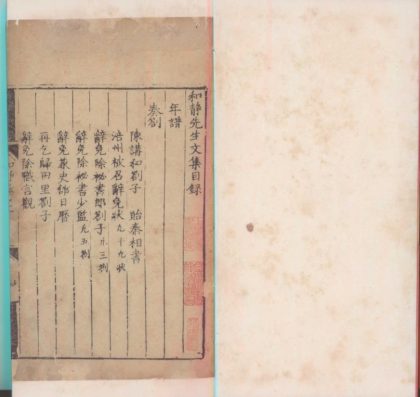 和靜先生文集目錄
年譜
奏劄
陳講和劄子 貽秦相書
涪州被召辭免狀凡十九狀
辭免除秘書郎劄子凡三劄
辭免除秘書少監凡五劄
辭免兼史館日曆
再乞歸田里劄子
辭免除職宮觀